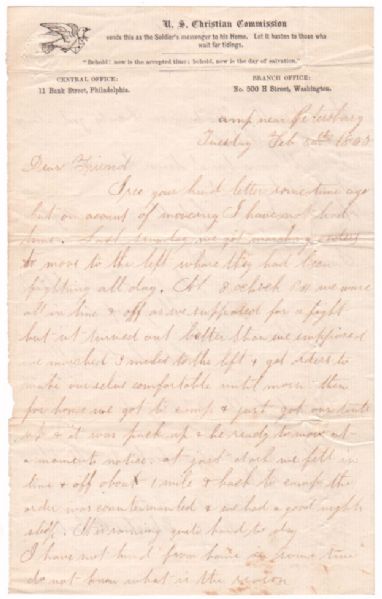 U. S. Christian Commission
sends this as the Soldier's messenger to his Home. Let it hasten to those who
wait for tidings.
"Behold! now is the accepted time; behold, now is the day of salvation."
CENTRAL OFFICE:
11 Bank Street, Philadelphia.
BRANCH OFFICE:
No. 500 H Street, Washington.
amp near Petersburg
Tuesday Feb 1865
Dear Friend
I rec your kind letter some time ago
but on account of moveing I have not had
time. Last sunday we got marching orders
to move to the left where they had been
fighting all day. At 8 oclock P M we ware
all in line & off as we supposed for a fight
but it turned out better than we supposed
we marched 3 miles to the left & got orders to
make our selves comfortable until morn then
for home we got to camp & just got our tents
up & it was pack up & be ready to move at
a moments notice. at good dark we fell in
line & off about 1 mile & back to camp the
order was countermanded & we had a good nights
sleep. It is raining quite hard to day
I have not heard from home in some time
do not know what is the reason